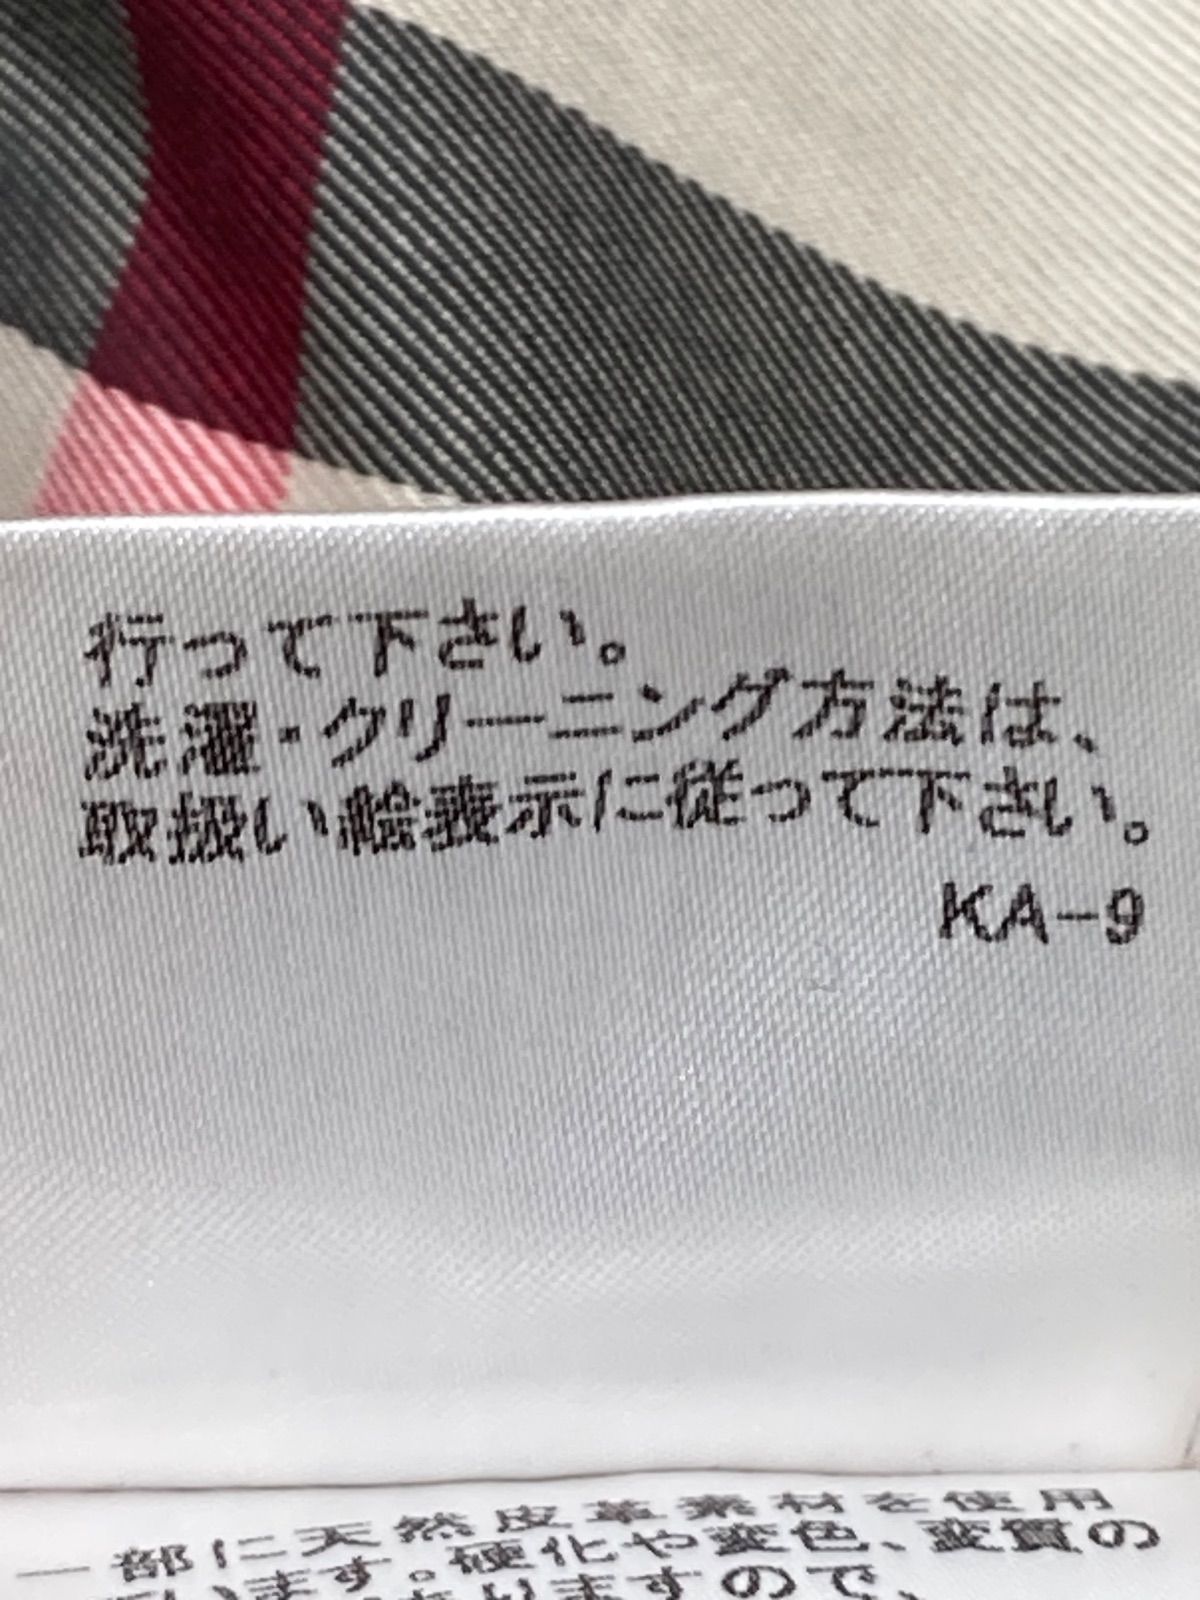 行って下さい。
洗濯・クリーニング方法は、
取扱い絵表示に従って下さい。
KA-9
一部に天然皮革素材を使用
います。硬化や変色、変質の
ありますので、